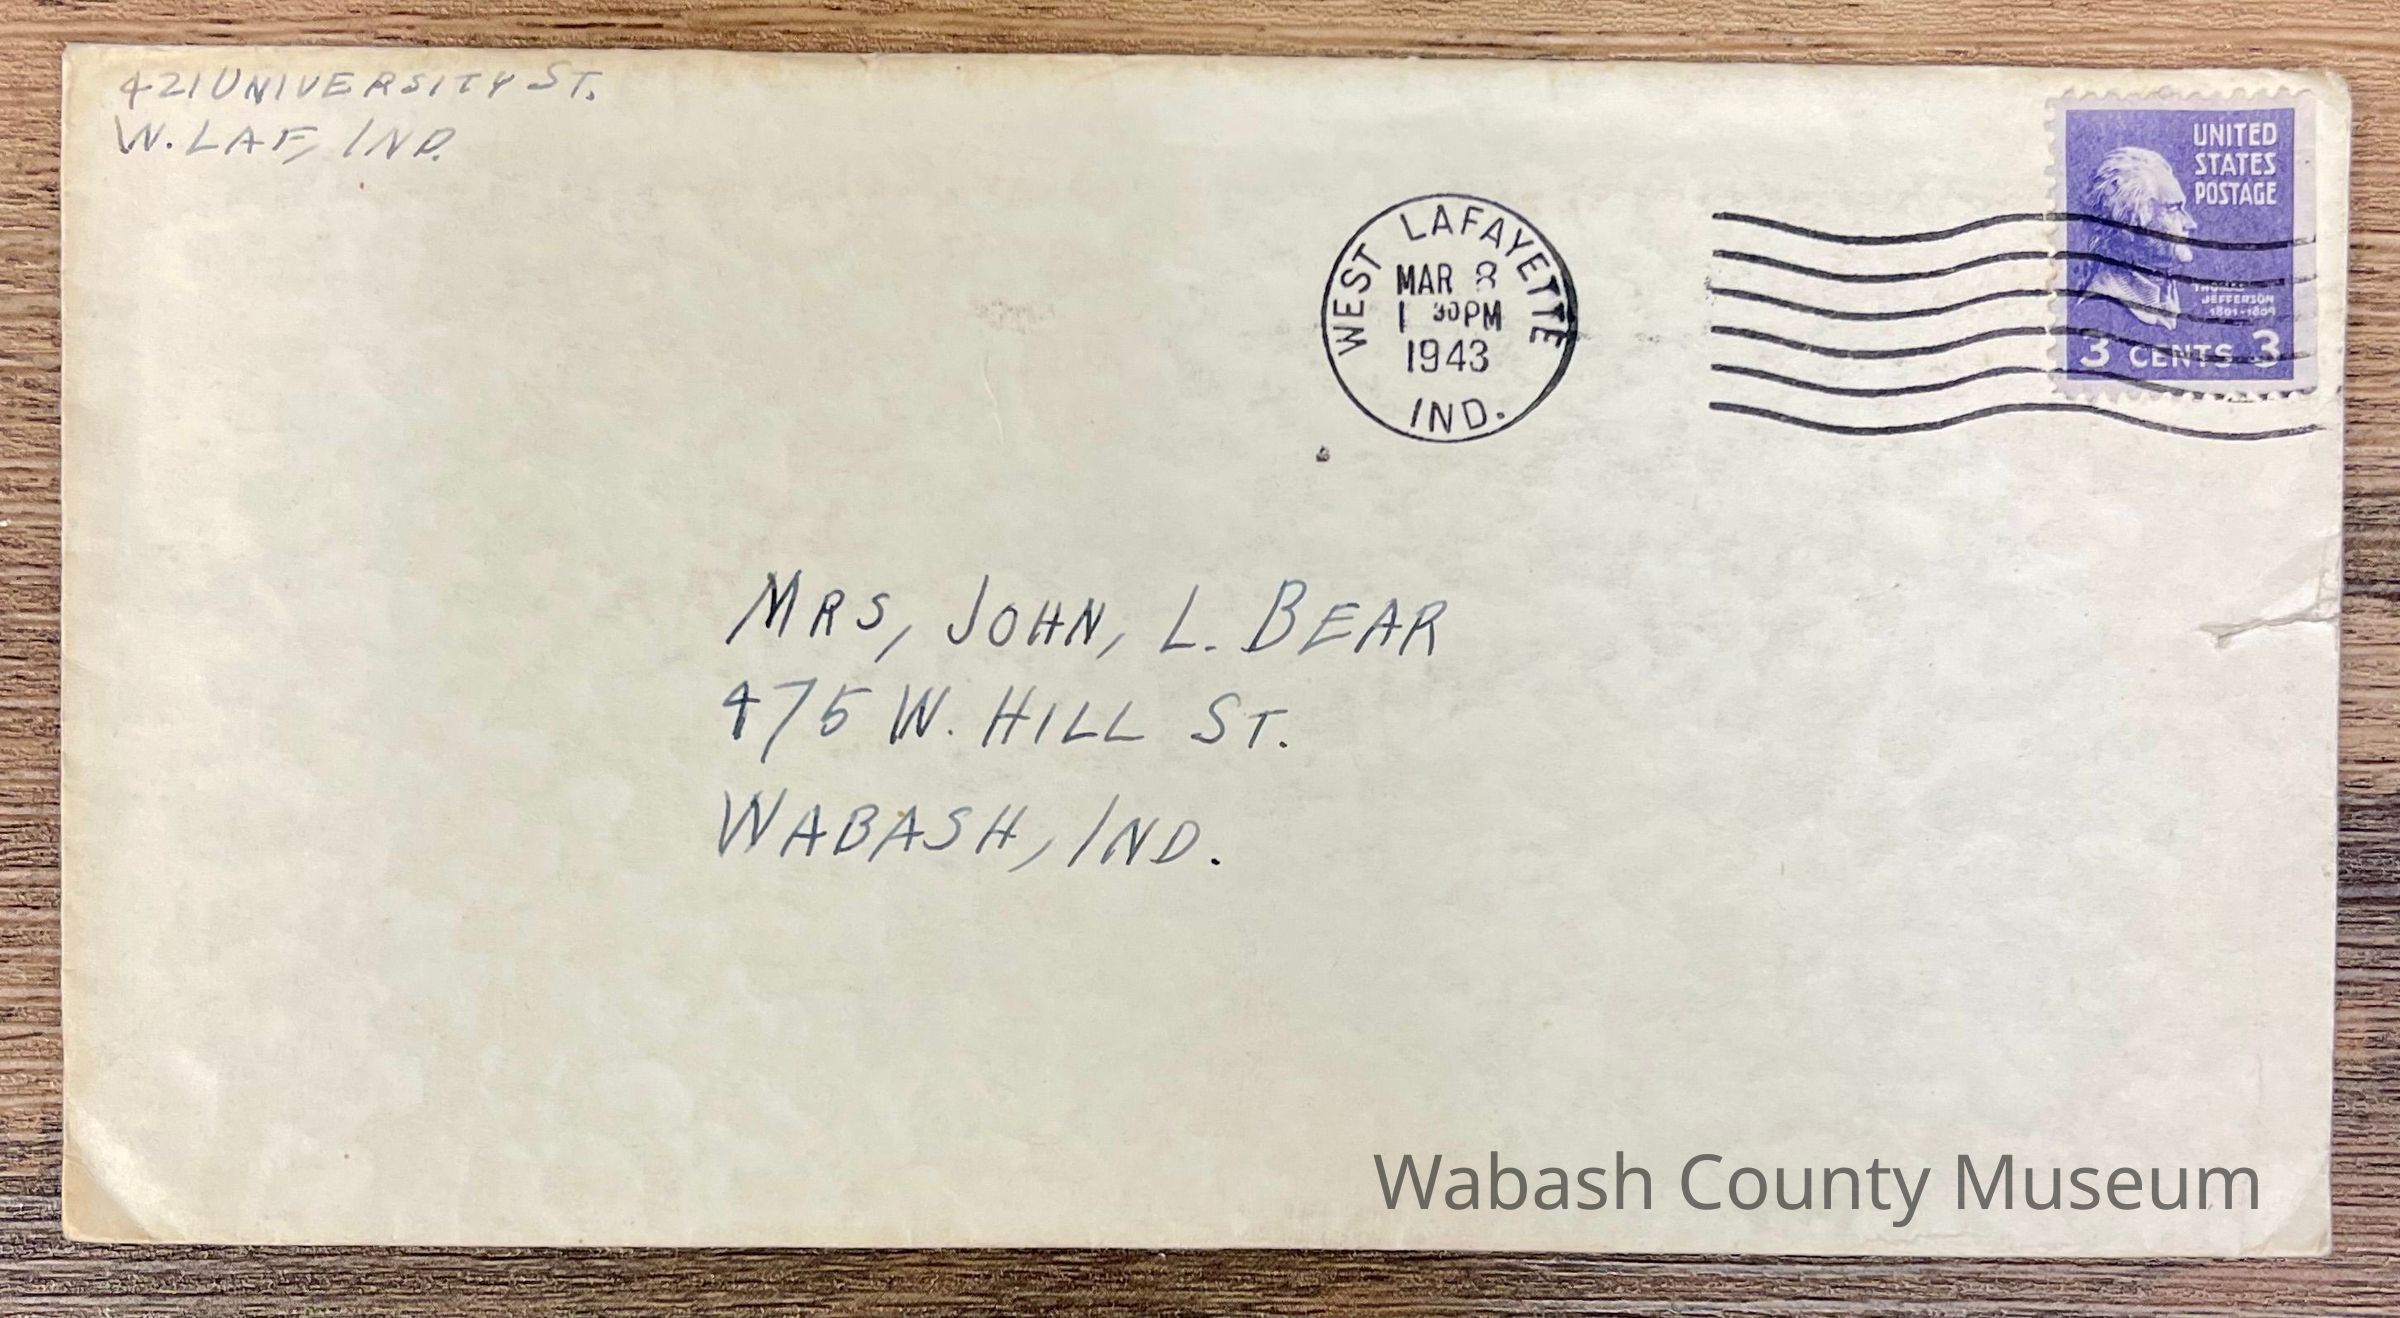 421 UNIVERSITY ST.
W. LAF, IND.
WEST LAFAYETTE
MAR 8
1 30PM
1943
IND.
UNITED
STATES
POSTAGE
THOMAS
JEFFERSON
1801-1809
3 CENTS 3
MRS, JOHN, L. BEAR
475 W. HILL ST.
WABASH, IND.
Wabash County Museum